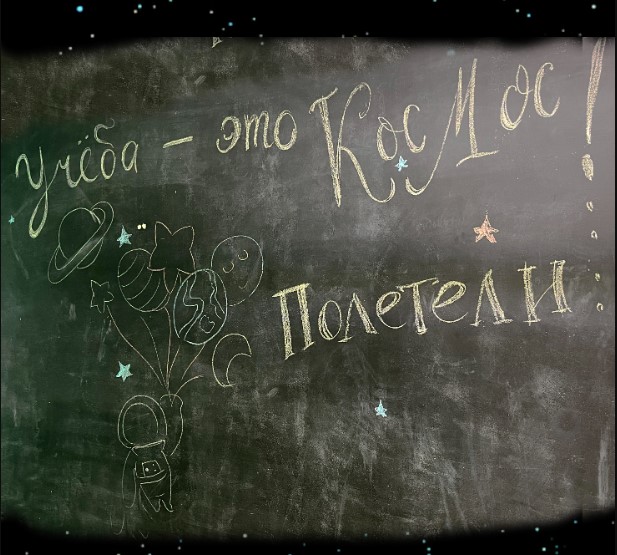 Учёба - это КосМос!
Полетели